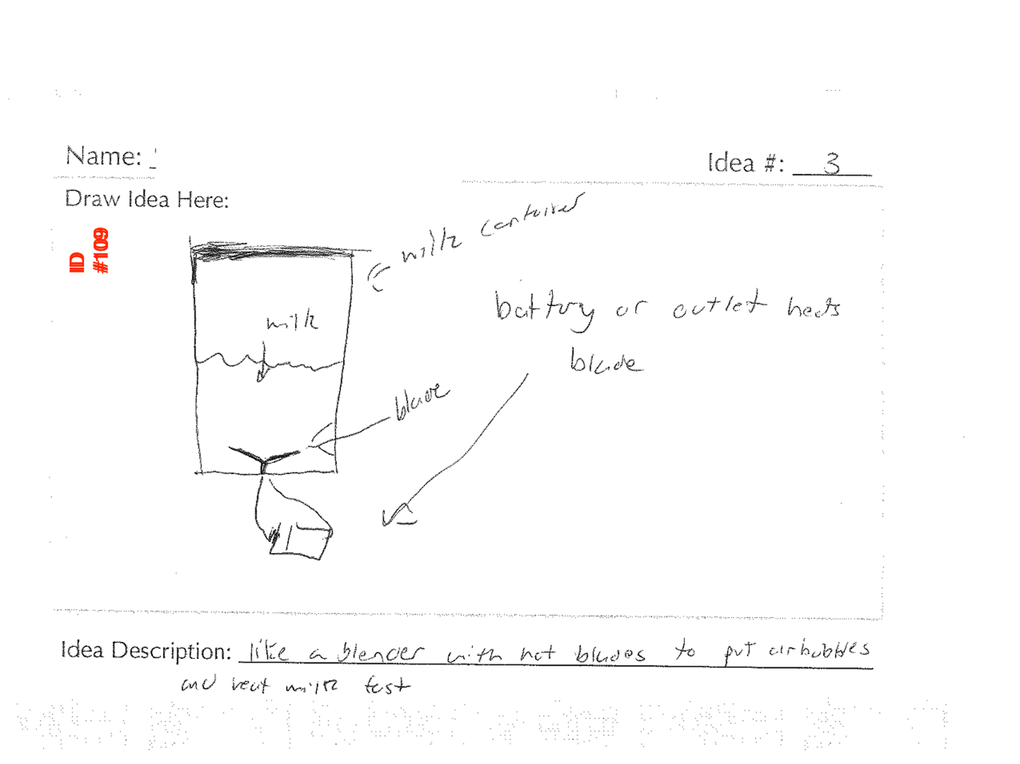 Name:
Idea #: 3
Draw Idea Here:
ID
#109
milk container
milk
battery or outlet heats
blade
blade
Idea Description: like a blender with hot blades to put airbubbles
and heat milk fast